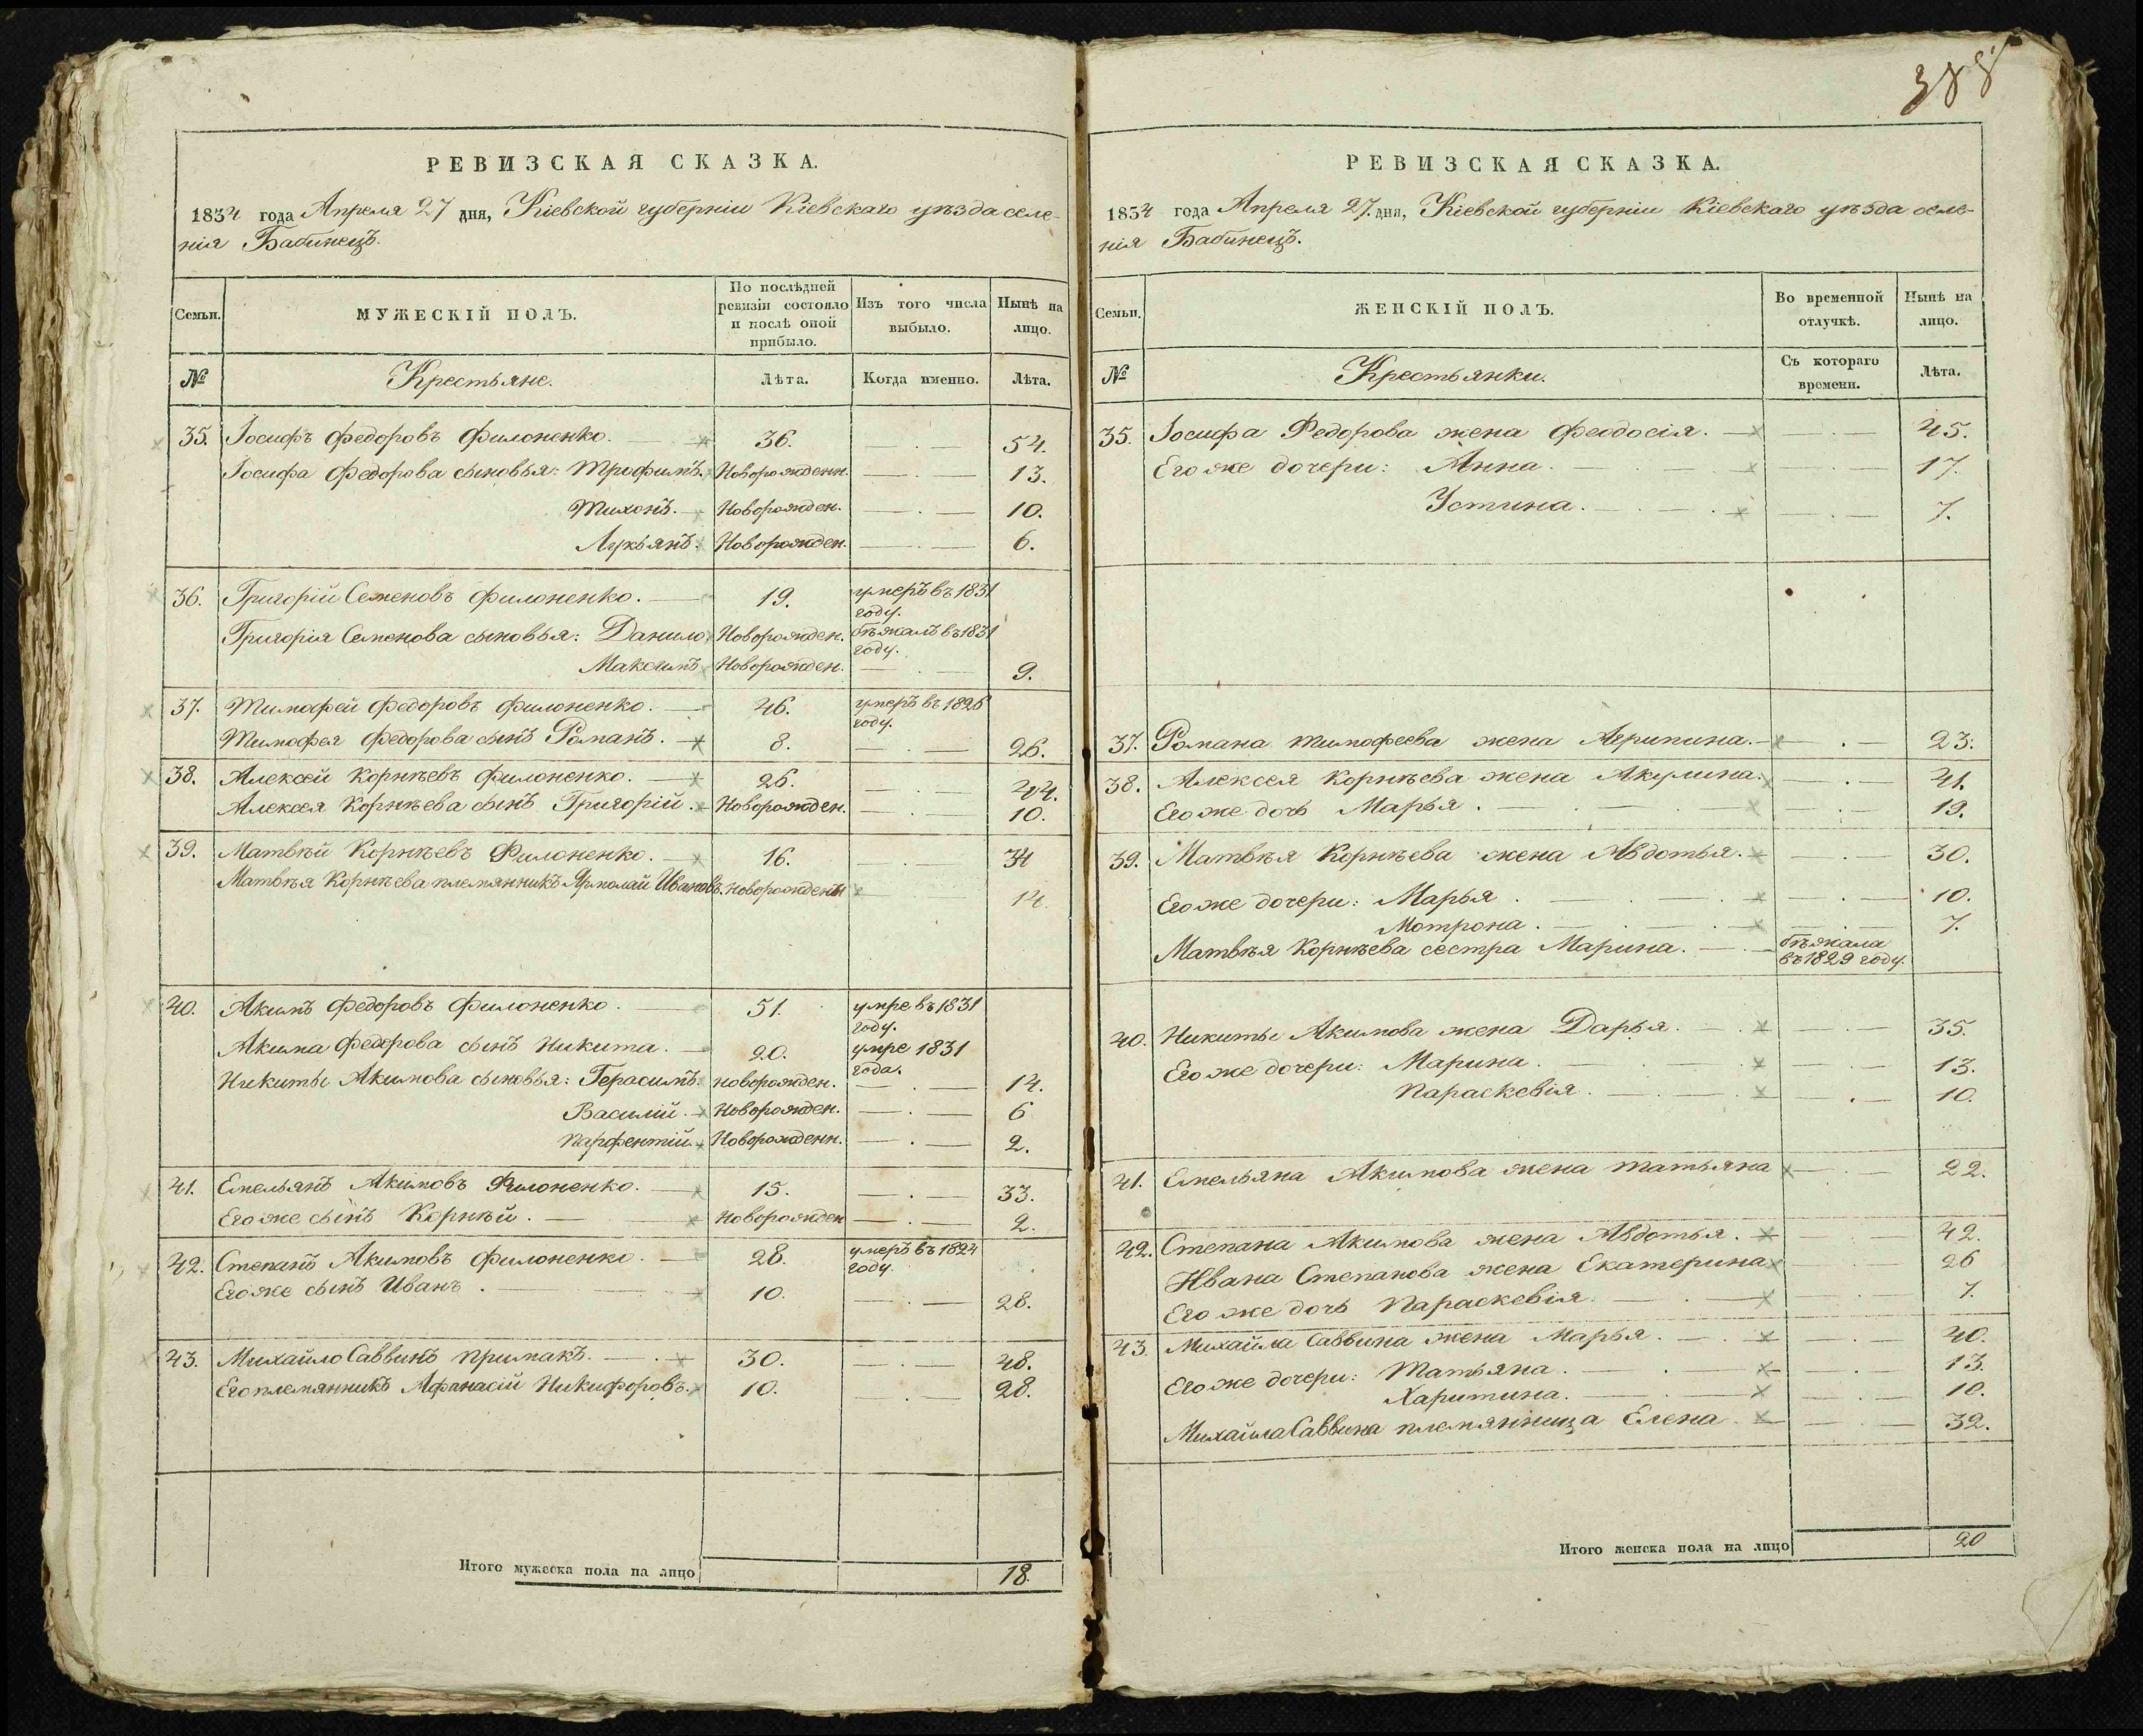 388
РЕВИЗСКАЯ СКАЗКА.
1834 года Апреля 27 дня, Кіевской губерніи Кіевскаго уѣзда селе-
нія Бабинецъ.
Семьи. МУЖЕСКІЙ ПОЛЪ. По послѣдней ревизіи состояло и послѣ оной прибыло. Изъ того числа выбыло. Нынѣ на лицо.
№ Крестьяне. Лѣта. Когда именно. Лѣта.
35. Іосифъ Федоровъ Филоненко. 36. 54.
Іосифа Федорова сыновья: Трофимъ. Новорожденн. 13.
Тихонъ. Новорожден. 10.
Лукьянъ. Новорожден. 6.
36. Григорій Семеновъ Филоненко. 19. умеръ въ 1831 году.
Григорія Семенова сыновья: Данило Новорожден. бѣжалъ въ 1831 году.
Максимъ Новорожден. 9.
37. Тимофей Федоровъ Филоненко. 46. умеръ въ 1826 году.
Тимофея Федорова сынъ Романъ. 8. 26.
38. Алексей Корнѣевъ Филоненко. 26. 44.
Алексея Корнѣева сынъ Григорій. Новорожден. 10.
39. Матвѣй Корнѣевъ Филоненко. 16. 34
Матвѣя Корнѣева племянникъ Ярмолай Ивановъ. новорожденъ 14.
40. Акимъ Федоровъ Филоненко. 51. умре въ 1831 году.
Акима Федорова сынъ Никита. 20. умре 1831 года.
Никиты Акимова сыновья: Герасимъ новорожден. 14.
Василій. Новорожден. 6
Парфентій. Новорожденн. 2.
41. Емельянъ Акимовъ Филоненко. 15. 33.
Его же сынъ Корнѣй. Новорожден 2.
42. Степанъ Акимовъ Филоненко. 28. умеръ въ 1824 году.
Его же сынъ Иванъ. 10. 28.
43. Михайло Саввинъ Примакъ. 30. 48.
Его племянникъ Афанасій Никифоровъ. 10. 28.
Итого мужеска пола на лицо 18.
РЕВИЗСКАЯ СКАЗКА.
1834 года Апреля 27. дня, Кіевской губерніи Кіевскаго уѣзда селе-
нія Бабинецъ.
Семьи. ЖЕНСКІЙ ПОЛЪ. Во временной отлучкѣ. Нынѣ на лицо.
№ Крестьянки. Съ котораго времени. Лѣта.
35. Іосифа Федорова жена Феодосія. 45.
Его же дочери: Анна. 17.
Устина. 7.
37. Романа Тимофеева жена Агрипина. 23.
38. Алексея Корнѣева жена Акулина. 41.
Его же дочь Марья. 19.
39. Матвѣя Корнѣева жена Авдотья. 30.
Его же дочери: Марья. 10.
Мотрона. 7.
Матвѣя Корнѣева сестра Марина. бѣжала въ 1829 году.
40. Никиты Акимова жена Дарья. 35.
Его же дочери: Марина. 13.
Параскевія. 10.
41. Емельяна Акимова жена Татьяна 22.
42. Степана Акимова жена Авдотья. 42.
Ивана Степанова жена Екатерина 26
Его же дочь Параскевія. 7.
43. Михайла Саввина жена Марья. 40.
Его же дочери: Татьяна. 13.
Харитина. 10.
Михайла Саввина племянница Елена. 32.
Итого женска пола на лицо 20